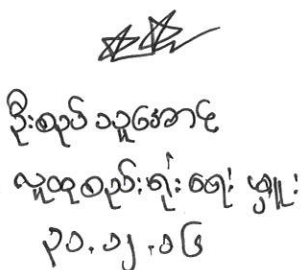 ဦးစည်သူအောင်
လူထုစည်းရုံးရေးမှူး
၃၁.၁၂.၁၆